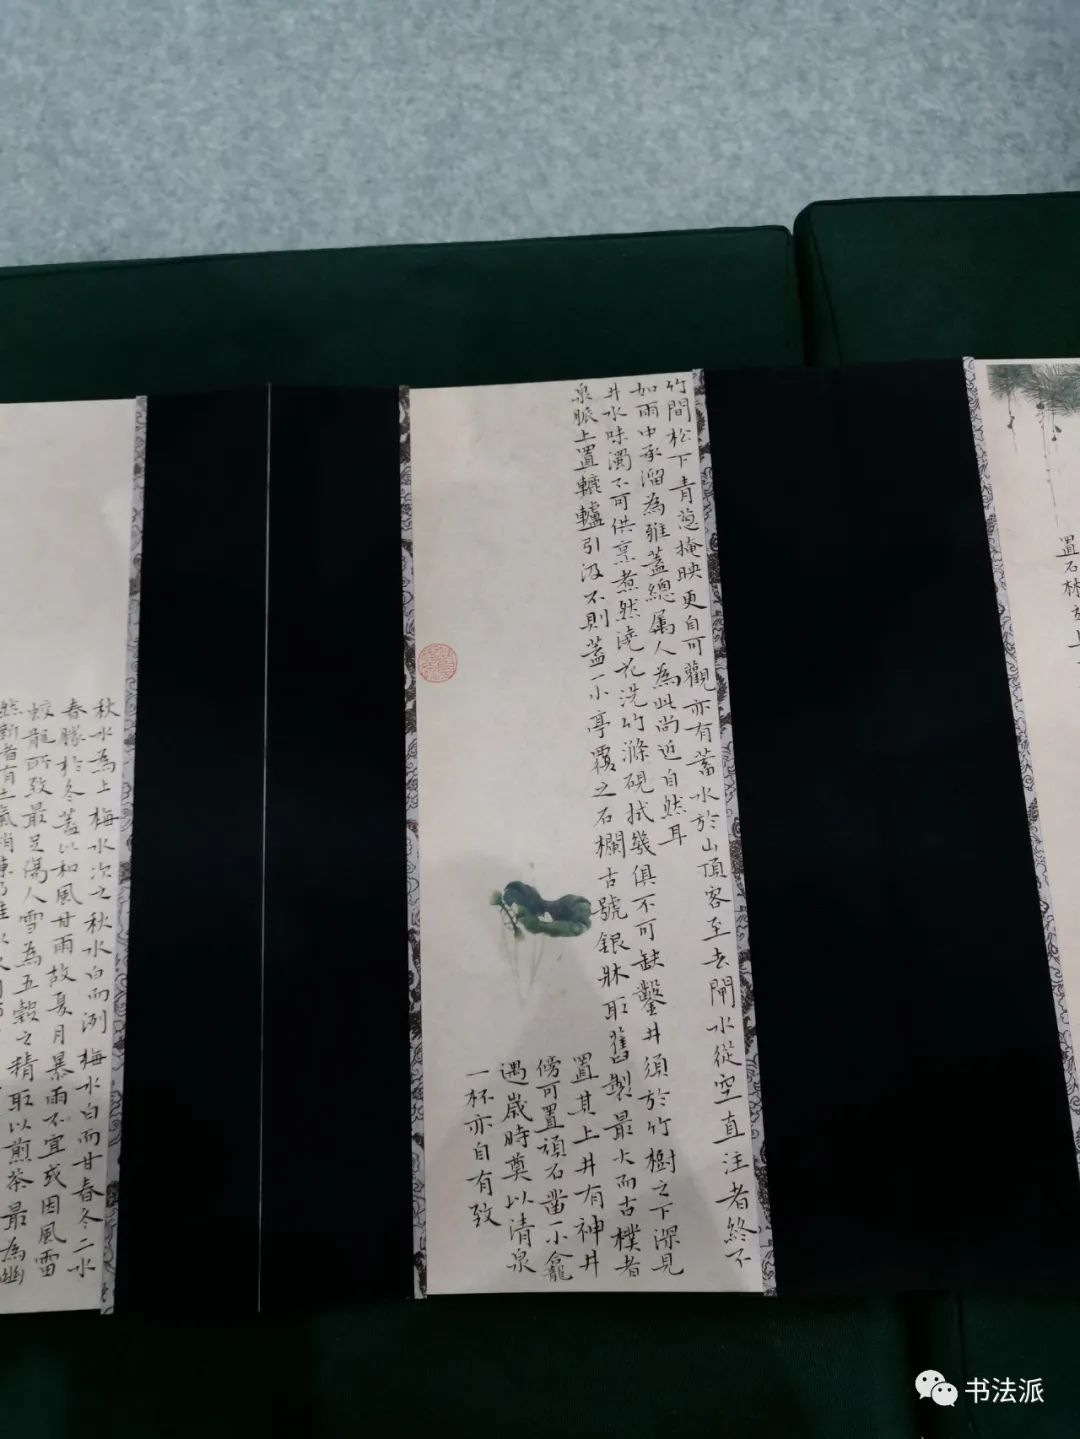 置石林
竹間松下青蔥掩映更自可觀亦有蓄水於山頂客至去閘水從空直注者終不
如雨中承溜為雅蓋總屬人為此尚近自然耳
井水味濁不可供烹煮然澆花洗竹滌硯拭幾俱不可缺鑿井須於竹樹之下深見
泉脈上置轆轤引汲不則蓋一小亭覆之石欄古號銀牀取舊製最大而古樸者
置其上井有神井
傍可置頑石鑿一小龕
遇歲時奠以清泉
一杯亦自有致
秋水為上梅水次之秋水白而冽梅水白而甘春冬二水
春勝於冬蓋以和風甘雨故夏月暴雨不宜或因風雷
蛟龍所致最足傷人雪為五穀之精取以煎茶最為幽
然新者有土氣稍陳乃佳
书法派